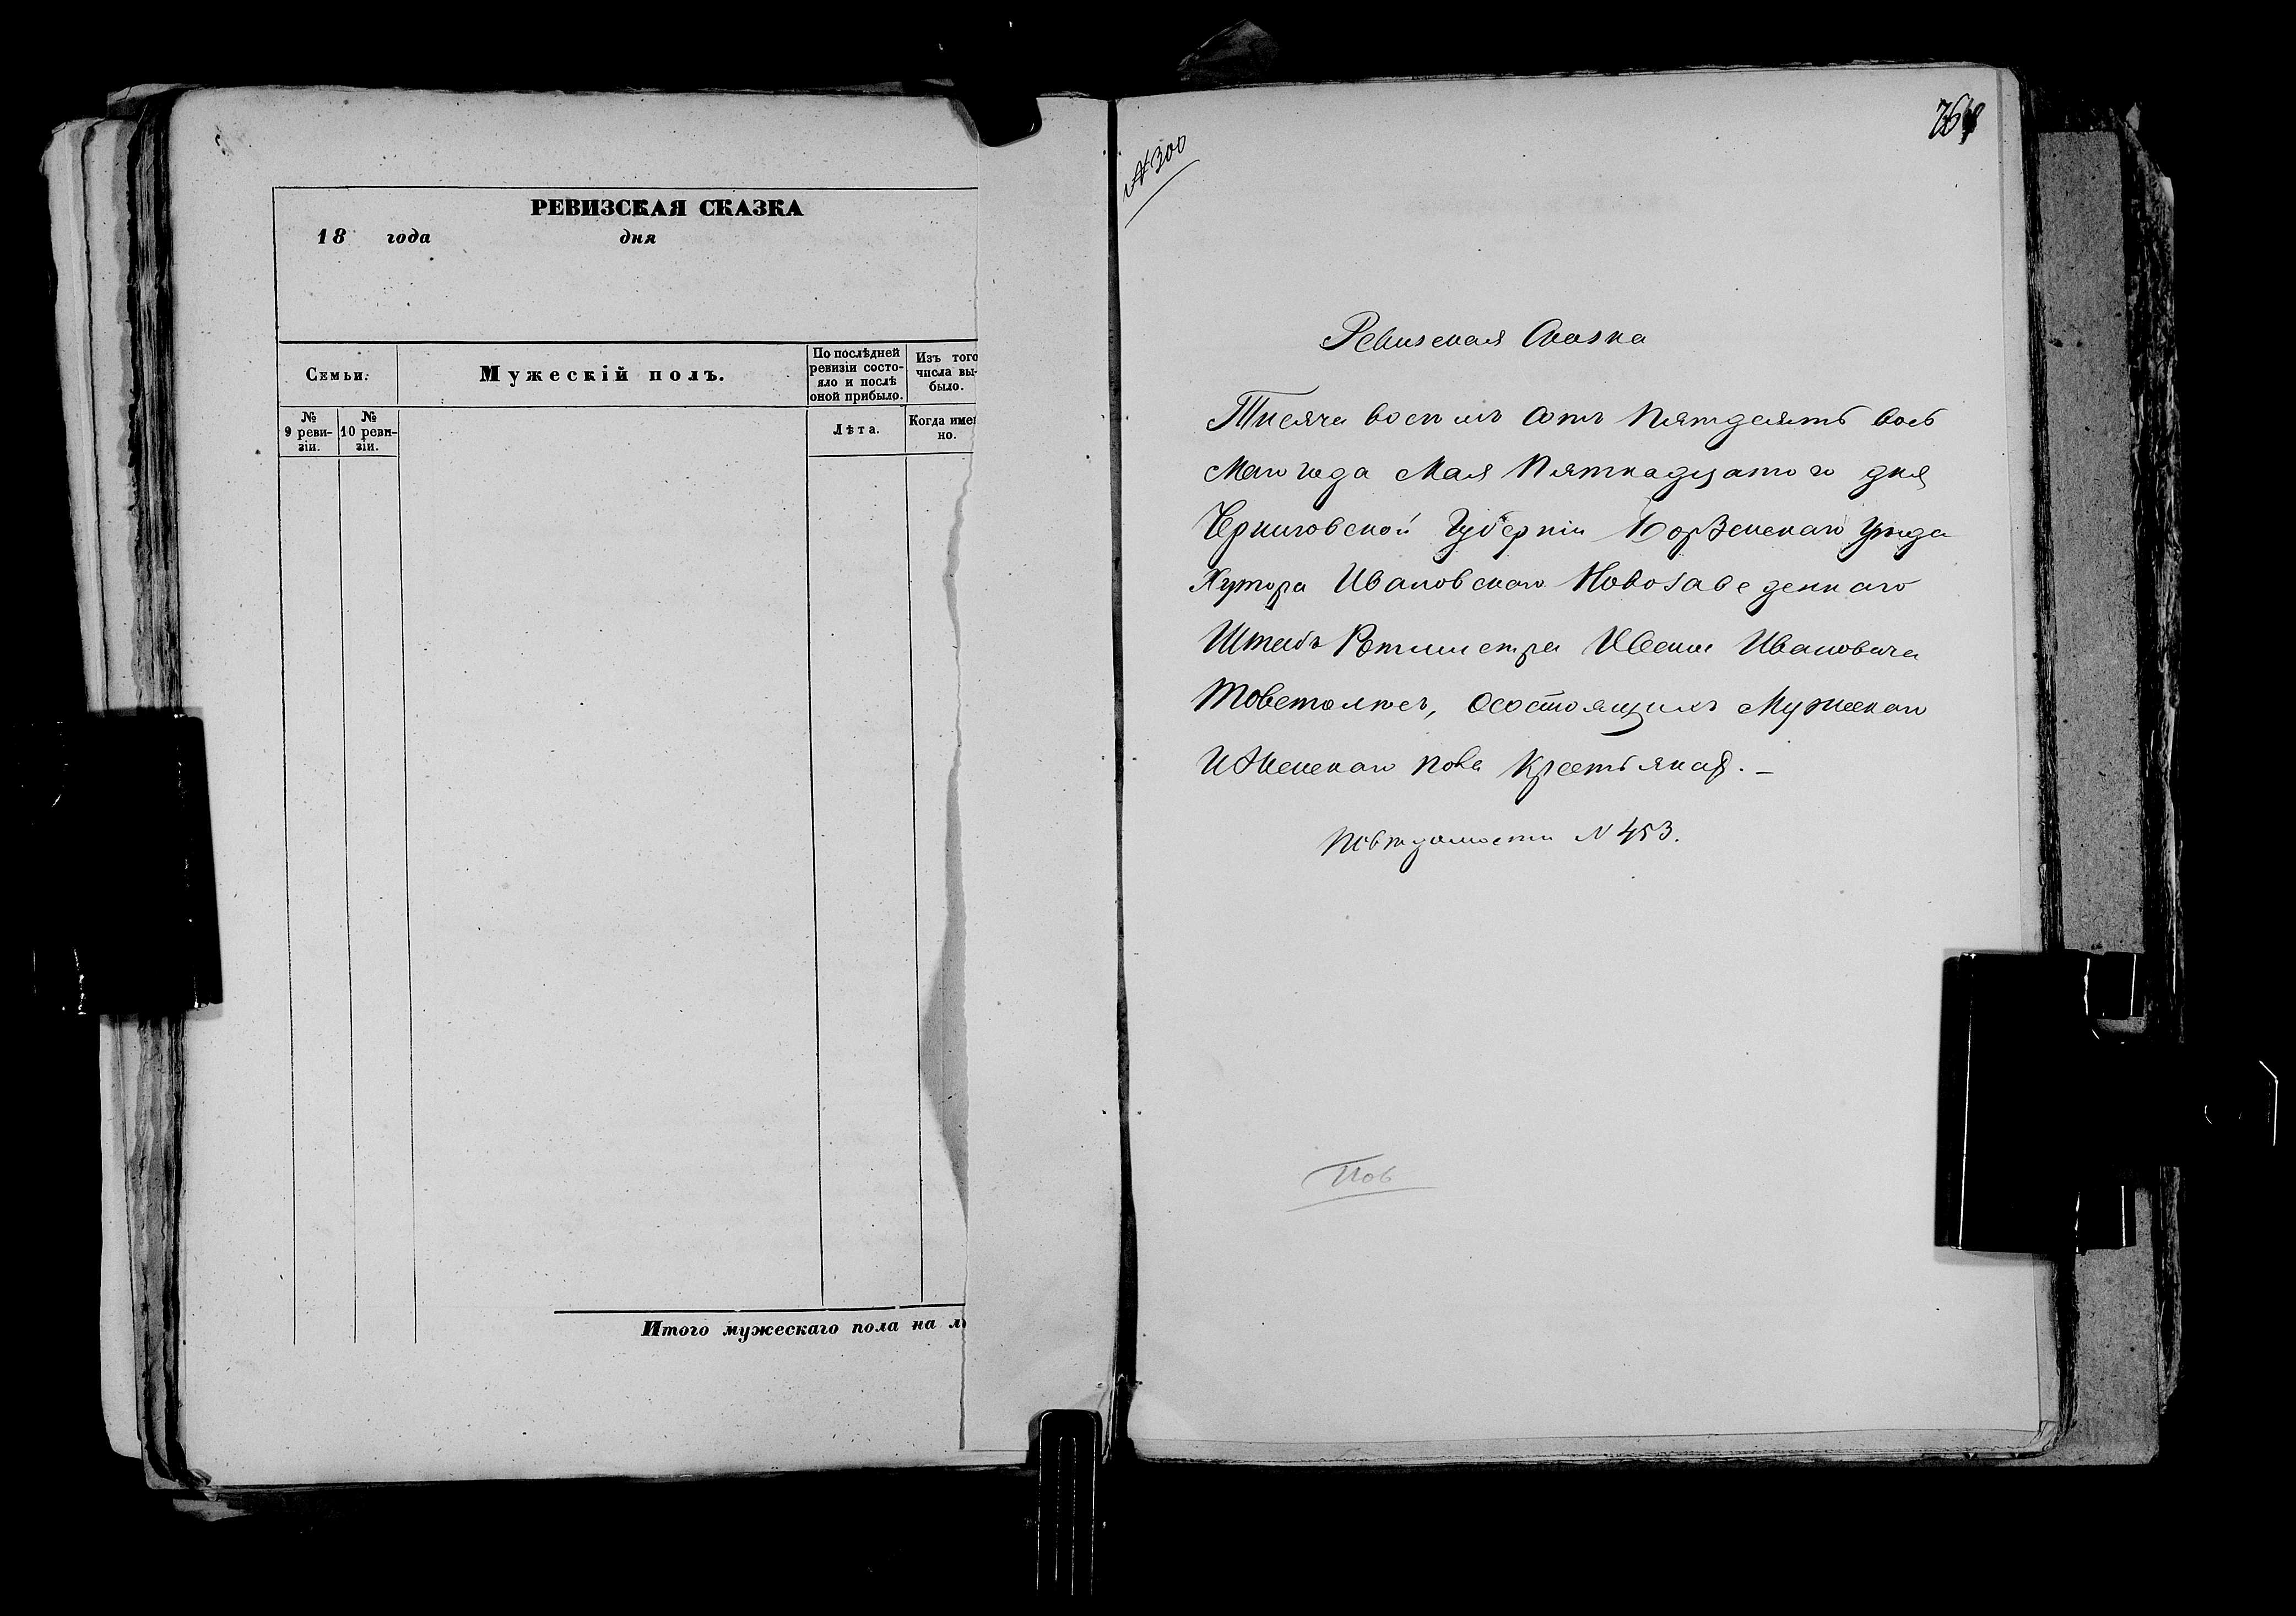 РЕВИЗСКАЯ СКАЗКА
18 года дня
Семьи.
Мужескій полъ.
По послѣдней
ревизіи состо-
яло и послѣ
оной прибыло.
Изъ того
числа вы-
было.
№
9 реви-
зіи.
№
10 реви-
зіи.
Лѣта.
Когда имен
но.
Итого мужескаго пола на
№ 300
Ревизская Сказка
Тисяча восемъ сотъ Пятдесятъ вось
маго года Мая Пятнадцатого дня
Черниговской Губерніи Борзенскаго уѣзда
Хутора Ивановскаго Новозаведеннаго
Штабъ Ротмистра Ивана Ивановича
осостоящихъ Мужескаго
И Женскаго пола Крестьянах. –
Повѣдомости № 453.
Пов